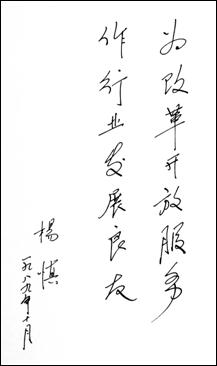 为改革开放服务
作行业发展良友
杨慎
一九八九年十月